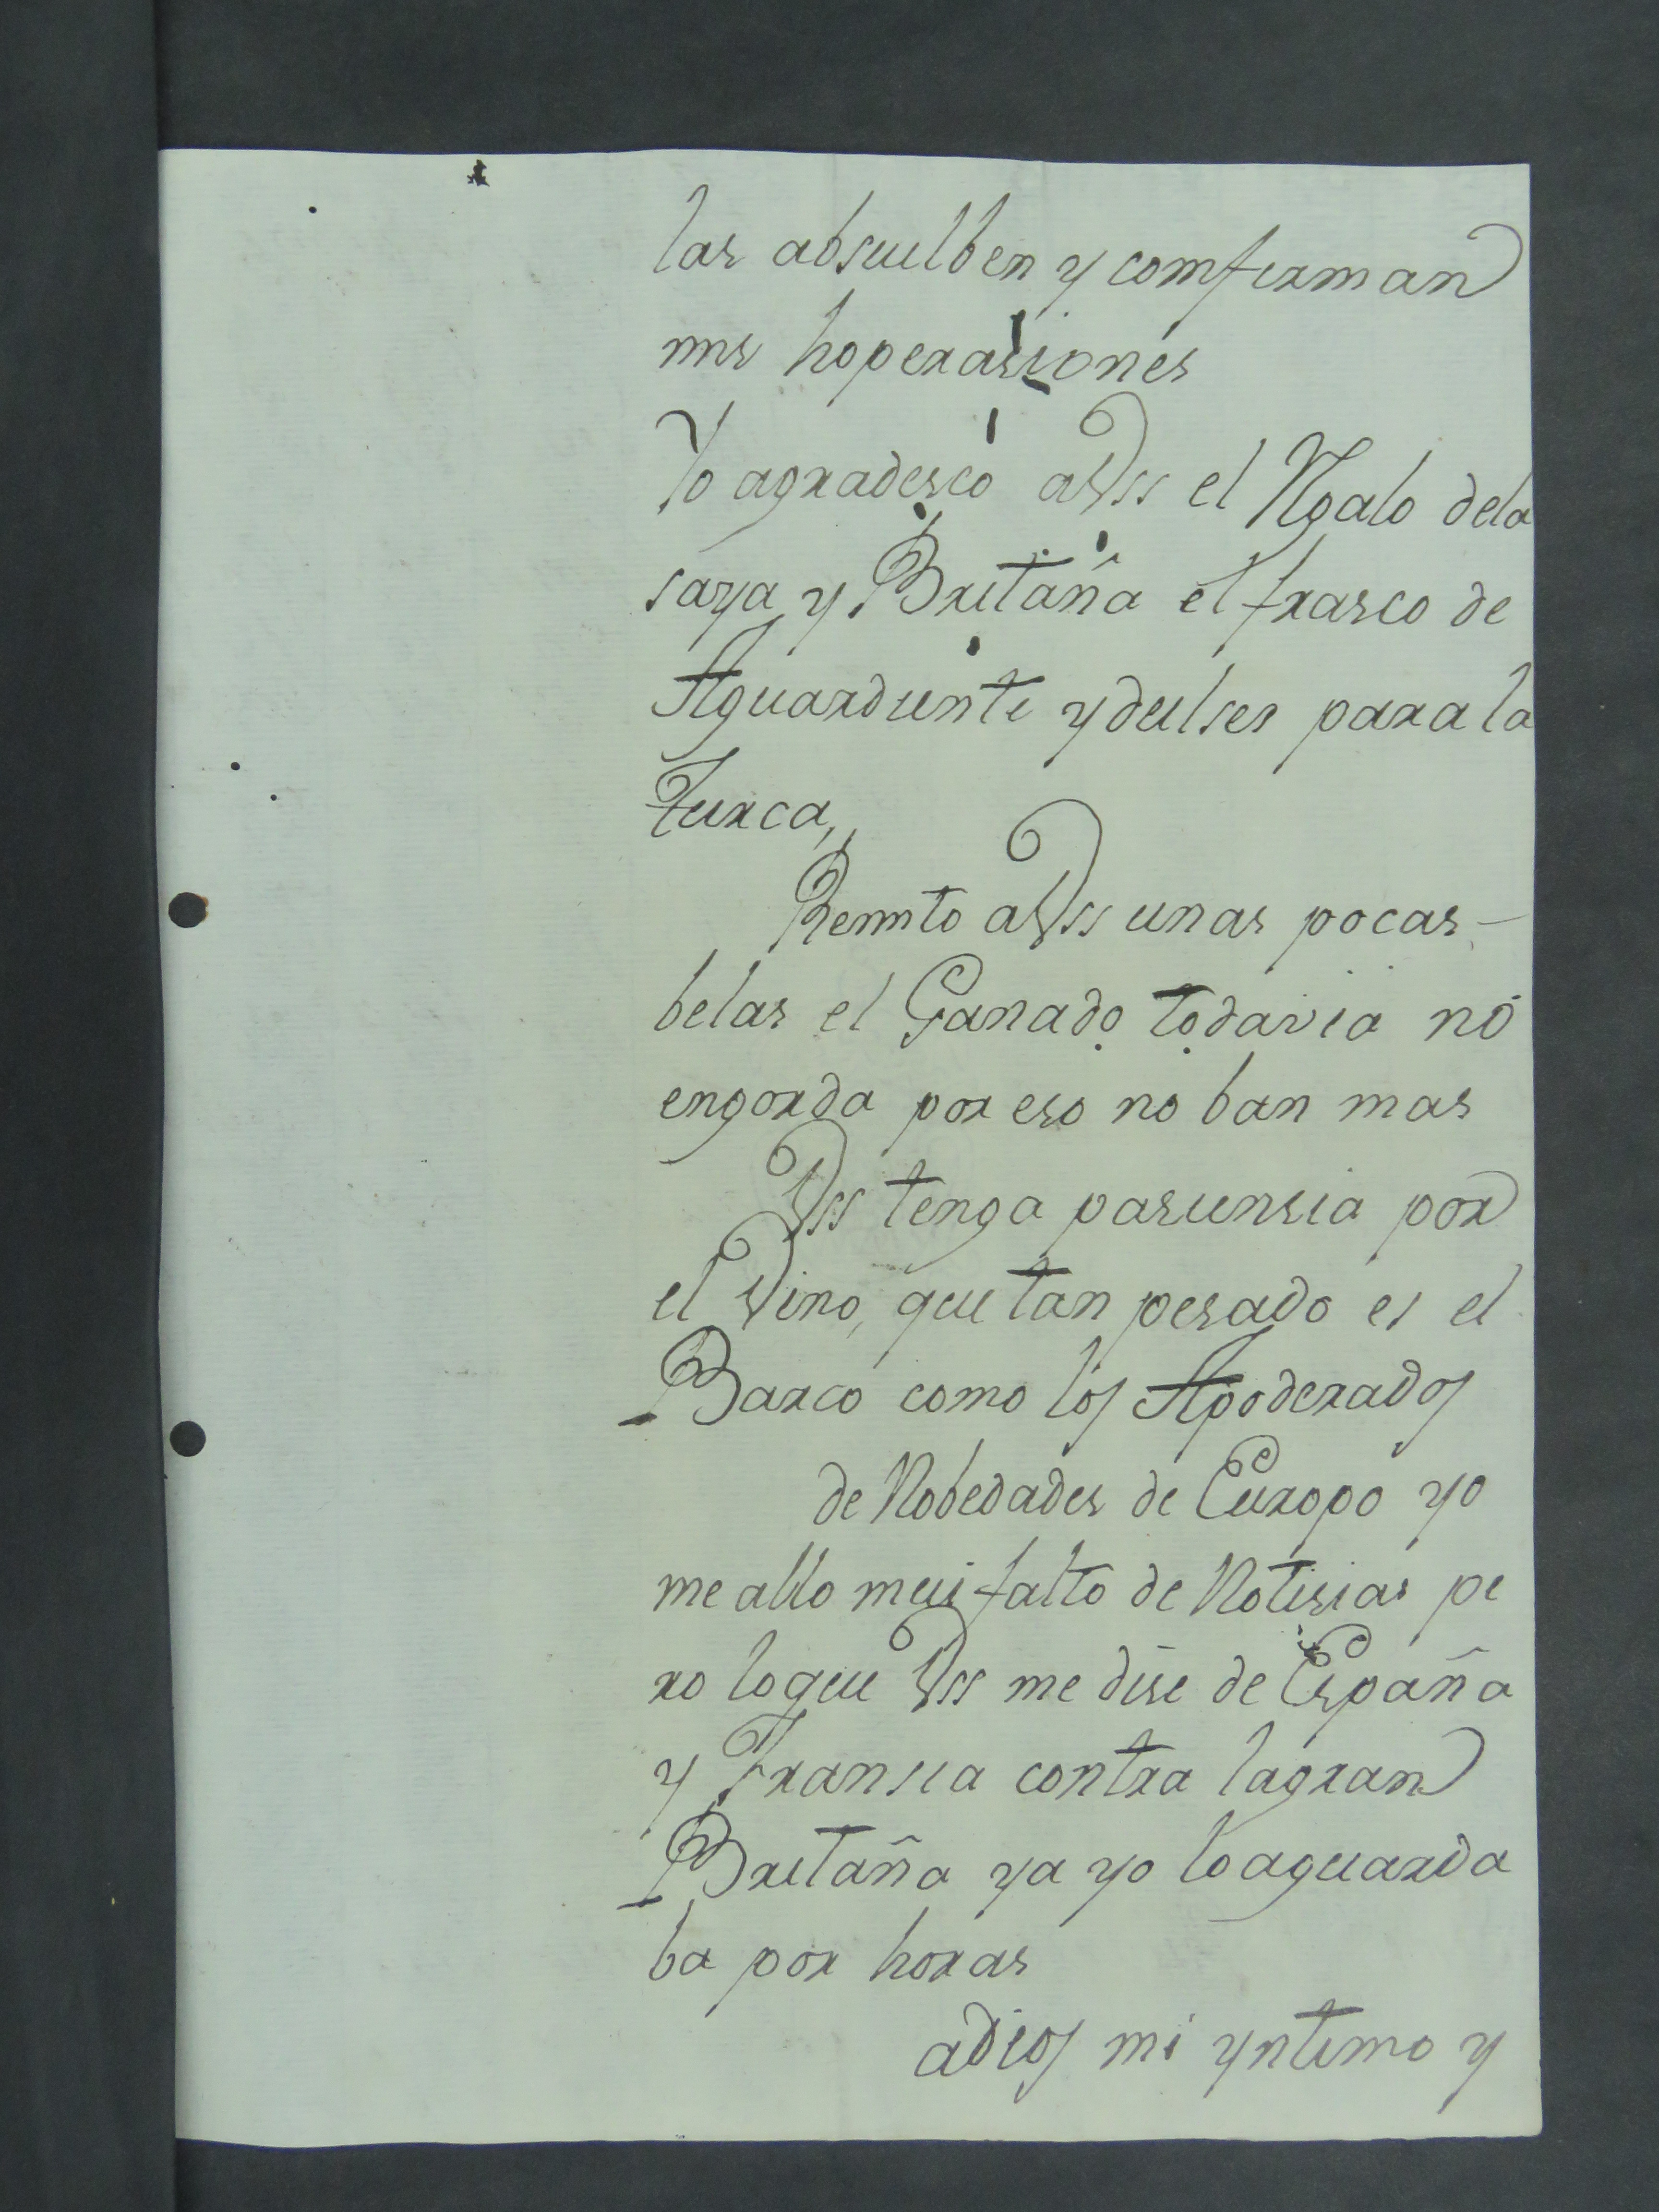 las absuelben y comfirman
mis hoperasiones
Yo agradesco a Vss el Regalo dela
saya y Britaña el frasco de
Aguardiente y dulses para la
turca,,
Remito a Vss unas pocas -
belas el Ganado todavia no
engorda por eso no ban mas
Vss tenga pasiensia por
el Vino, que tan pesado es el
Barco como los Apoderados
de Nobedades de Europo yo
me allo mui falto de Notisias pe
ro loque Vss me dise de España
y Fransia contra lagran
Britaña ya yo lo aguarda
ba por horas
adios mi yntimo y